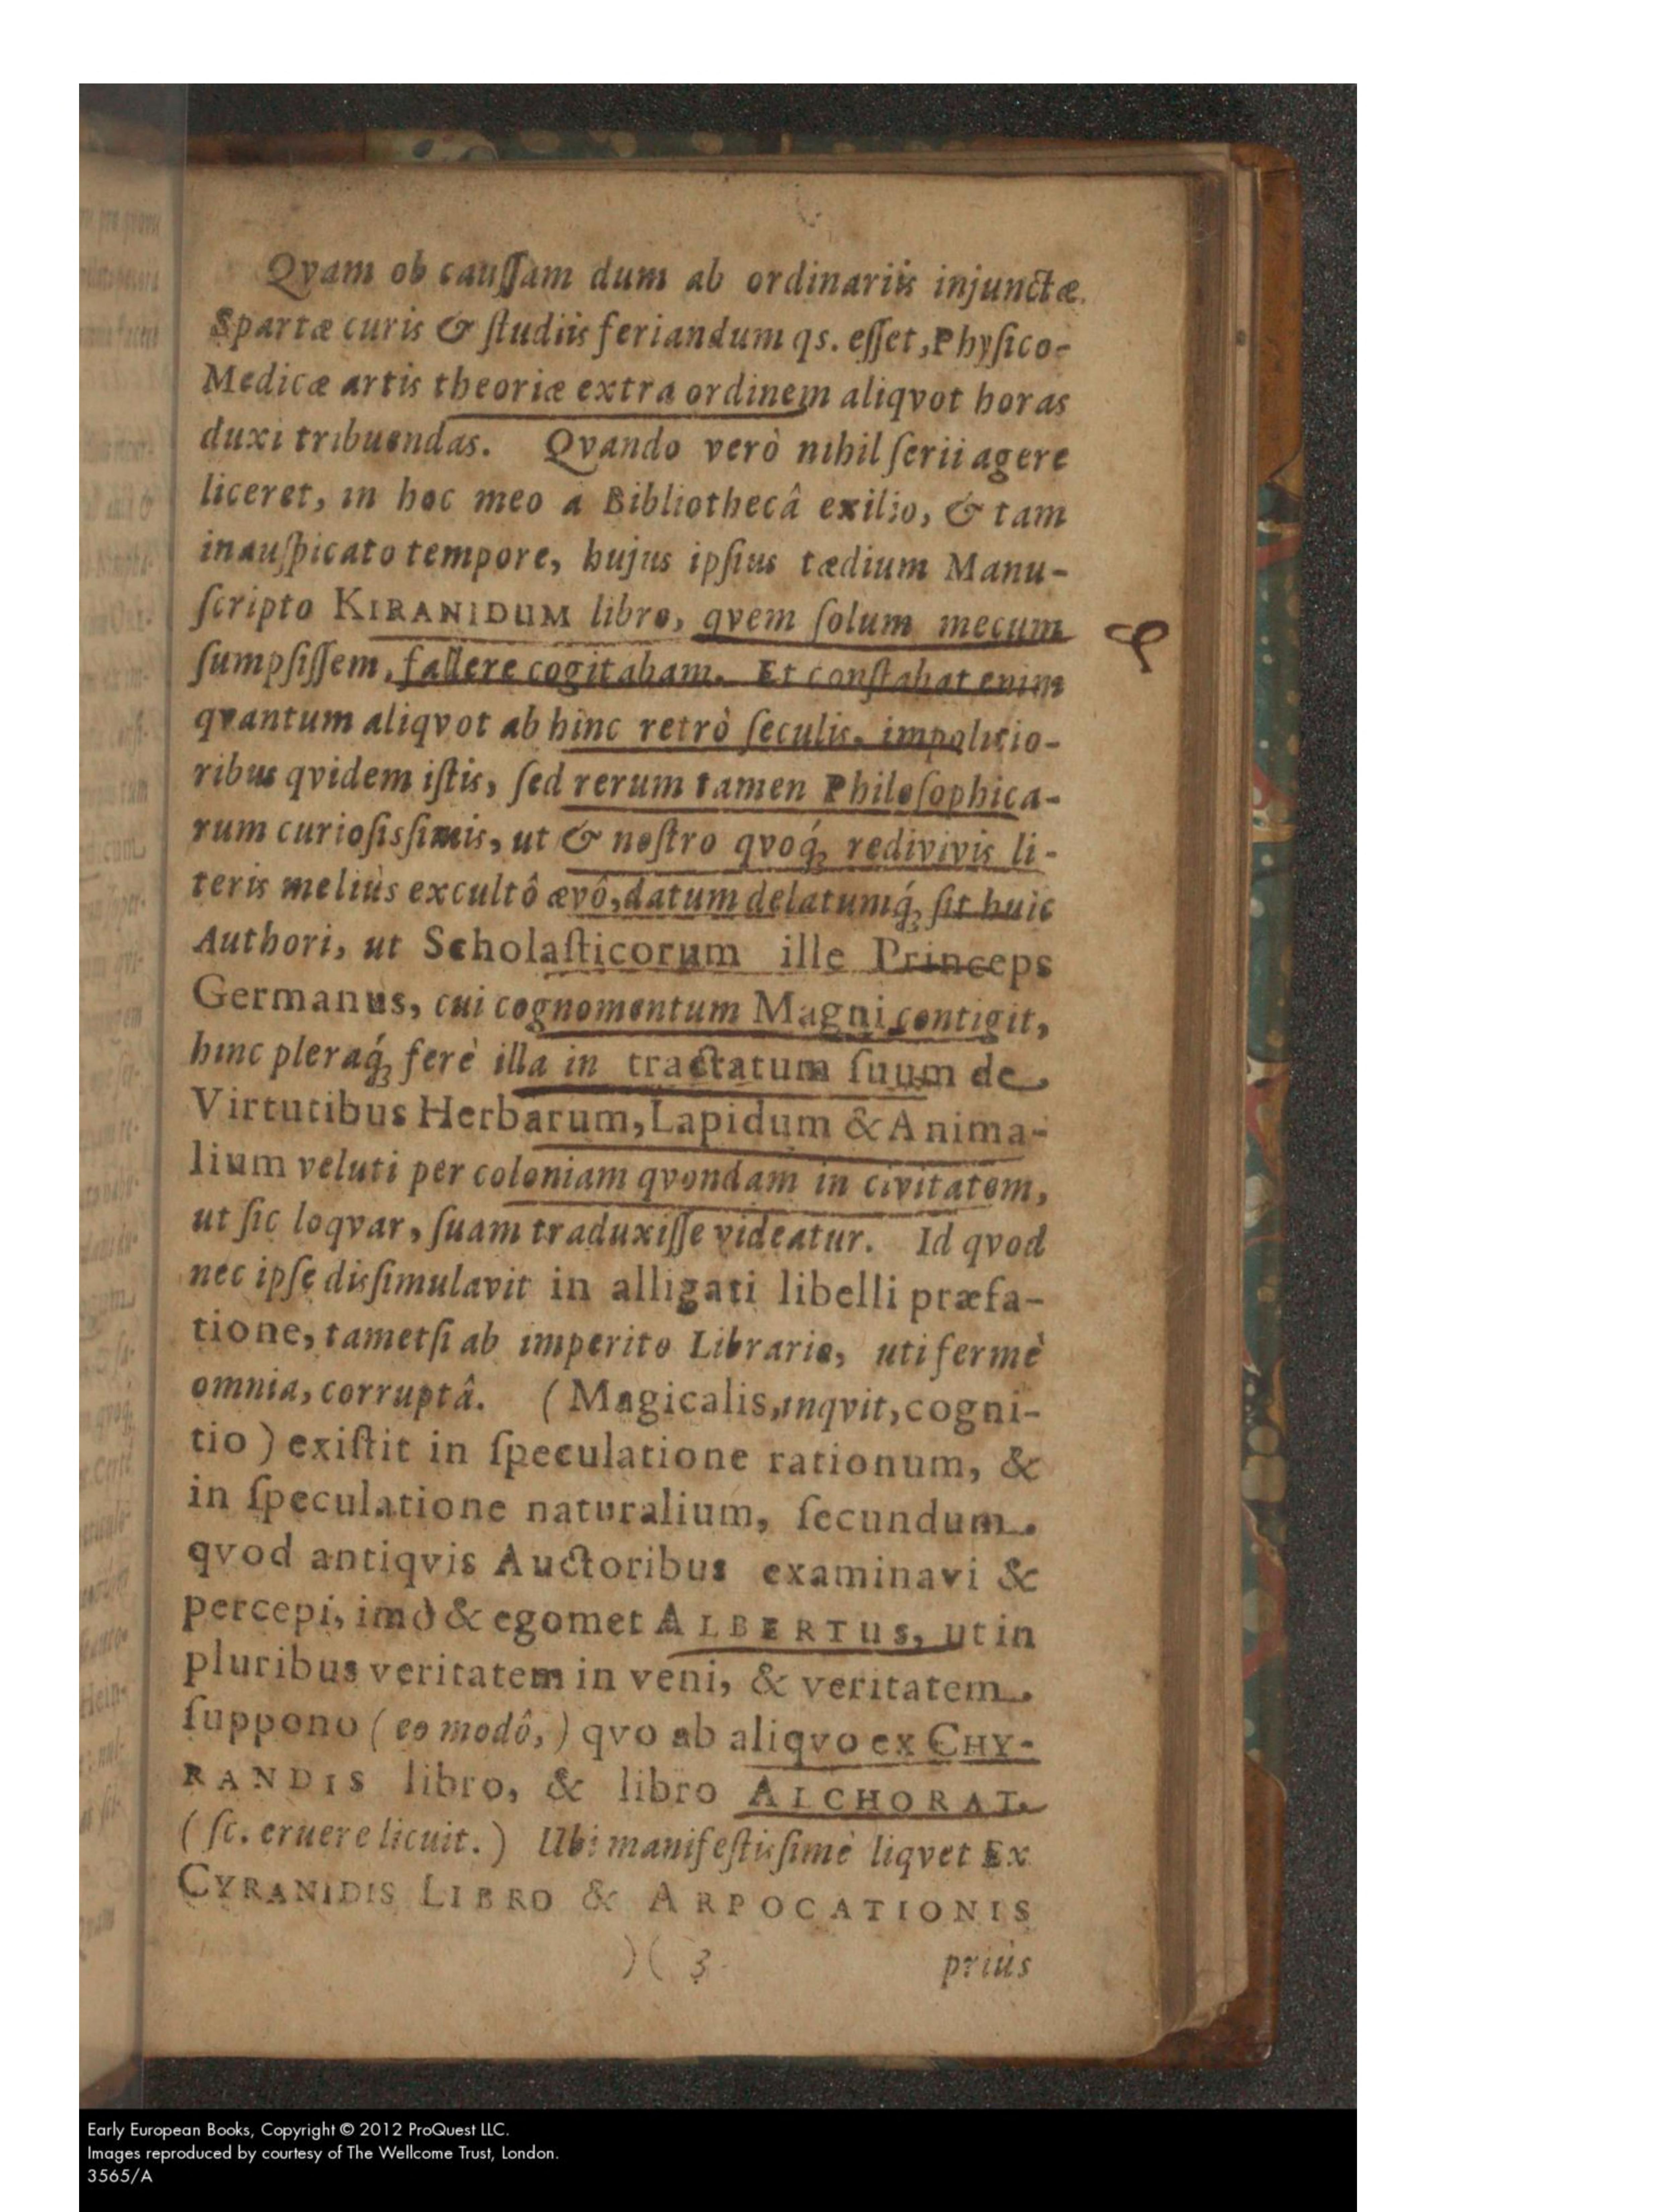 Qvam ob cauſſam dum ab ordinariis injunctæ
Spartæ curis & ſtudiis feriandum qs. eſſet, Phyſico-
Medicæ artis theoriæ extra ordinem aliqvot horas
duxi tribuendas. Qvando verò nihil ſerii agere
liceret, in hoc meo a Bibliothecâ exilio, & tam
inauſpicato tempore, hujus ipſius tædium Manu-
ſcripto KIRANIDUM libro, qvem ſolum mecum
ſumpſiſſem, fallere cogitabam. Et conſtabat enim
qvantum aliqvot ab hinc retrò ſeculis, impolitio-
ribus qvidem iſtis, ſed rerum tamen Philoſophica-
rum curioſisſimis, ut & noſtro qvoq́; redivivis li-
teris meliùs excultô ævô, datum delatumq́; ſit huic
Authori, ut Scholaſticorum ille Princeps
Germanus, cui cognomentum Magni contigit,
hinc pleraq́; ferè illa in tractatum ſuum de
Virtutibus Herbarum, Lapidum & Anima-
lium veluti per coloniam qvondam in civitatem,
ut ſic loqvar, ſuam traduxiſſe videatur. Id qvod
nec ipſe disſimulavit in alligati libelli præfa-
tione, tametſi ab imperito Librario, uti fermè
omnia, corruptâ. (Magicalis, inqvit, cogni-
tio) exiſtit in ſpeculatione rationum, &
in ſpeculatione naturalium, ſecundum
qvod antiqvis Auctoribus examinavi &
percepi, imò & egomet ALBERTUS, ut in
pluribus veritatem in veni, & veritatem
ſuppono (eo modô,) qvo ab aliqvo ex CHY-
RANDIS libro, & libro ALCHORAT.
(ſc. eruere licuit.) Ubi manifeſtisſimè liqvet Ex
CYRANIDIS LIBRO & ARPOCATIONIS
)( 3 priùs
Early European Books, Copyright © 2012 ProQuest LLC.
Images reproduced by courtesy of The Wellcome Trust, London.
3565/A